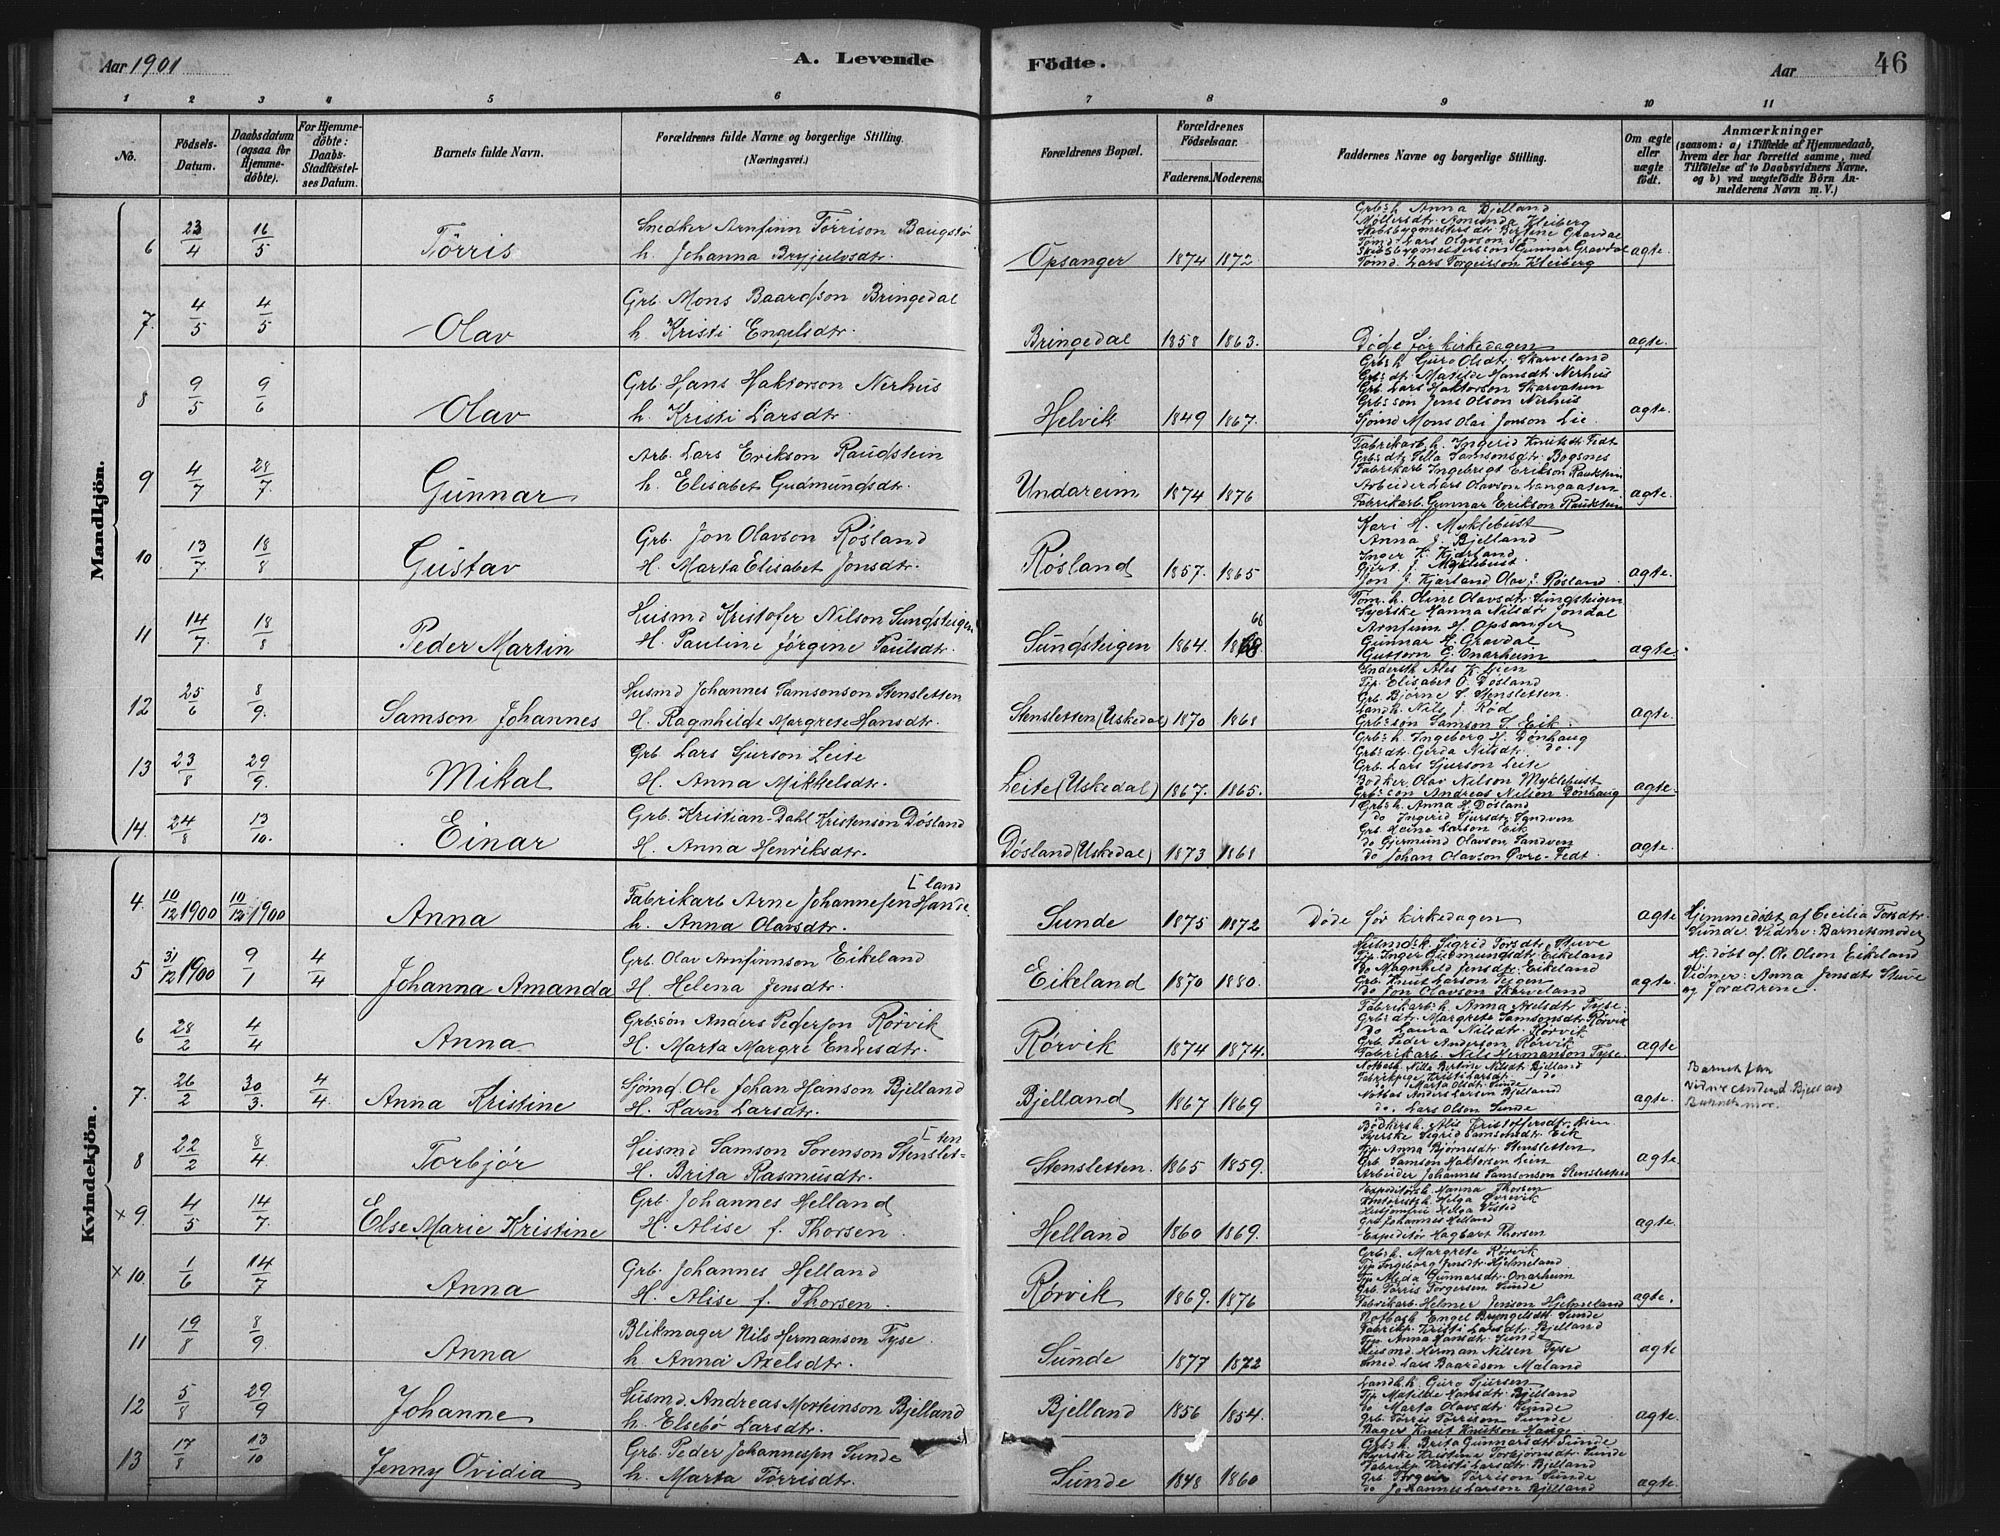 Aar 1901
A. Levende
Födte.
Aar
46
1 2 3 4 5 6 7 8 9 10 11
No.
Födsels-Datum.
Daabsdatum (ogsaa for Hjemme-döbte).
For Hjemme-döbte: Daabs-Stadfæstel-ses Datum.
Barnets fulde Navn.
Forældrenes fulde Navne og borgerlige Stilling. (Næringsvei.)
Forældrenes Bopæl.
Forældrenes Födselsaar.
Faderens. Moderens.
Faddernes Navne og borgerlige Stilling.
Om ægte eller uægte födt.
Anmærkninger
(saasom: a) i Tilfælde af Hjemmedaab, hvem der har forrettet samme, med Tilföielse af to Daabsvidners Navne, og b) ved uægtefödte Börn An-melderens Navn m. V.)
Mandkjön.
6 23/4 16/5 Tørris
Snedker Arnfinn Tørrison Baugstø
h. Johanna Brynjulvsdtr.
Opsanger 1874 1872
Grb:h Anna Bjelland
Møllersdtr. Amunda Kleiberg
Skibsbygmestersdtr Bertine Gravdal
Skibsbygmesterson Gunnar Gravdal
Tømd. Lars Torgeirson Kleiberg
agte.
7. 4/5 4/5 Olav
Grb. Mons Baardson Bringedal
h. Kristi Engelsdtr.
Bringedal 1858 1863.
Døde før kirkedagen
agte.
8 9/5 9/6 Olav
Grb Hans Haktorson Nerhus
h. Kristi Larsdtr.
Helvik 1849 1867.
Grb:h. Guro Olsdtr. Skarveland
Grb:dt. Matilde Hansdt. Nerhus
Grb. Lars Haktorson Skarvatun
Grb:son Jens Olson Nerhus
Sjømd Mons Olai Jonson Lie
agte.
9 4/7 28/7. Gunnar
Arb. Lars Erikson Raudstein
h. Elisabet Gudmundsdt.
Undareim 1874 1876
Fabrikarb. h. Ingerid Knutsdt. Fedt
Grb:dtr Tella Samsonsdt. Bogsnes
Fabrikarb Ingebrigt Erikson Raudstein
Arbeider Lars Olavson Langaaten
Fabrikarb. Gunnar Erikson Raudstein
agte.
10 13/7. 18/8 Gustav
Grb. Jon Olavson Røsland
H. Marta Elisabet Jonsdtr.
Røsland 1857. 1865
Kari H. Myklebust
Anna J. Bjelland
Inger K. Kjærland
Gjert J. Myklebust
Jon J. Kjærland Olav J. Røsland
agte.
11 14/7. 18/8 Peder Martin
Husmd Kristofer Nilson Sundsteigen
H. Pauline Jørgine Paulsdtr.
Sundsteigen 1864. 68
Tom. h. Oline Olavsdt. Sundsteigen
Syerske Hanna Nilsdtr Jondal
Arnfinn H. Opsanger
Gunnar H. Gravdal
Guttorm E. Onarheim
agte.
12 25/6 8/9. Samson Johannes
Husmd Johannes Samsonson Stensletten
H. Ragnhilde Margrete Hansdtr.
Stensletten (Uskedal) 1870 1868
Inderstk Ales K. Lien
Tjp. Elisabet O. Døsland
Grb Bjørne S. Stensletten.
Landh. Nils J. Rød
Grb:son Samson S. Eik.
agte.
13 23/8 29/9. Mikal
Grb Lars Sjurson Leite
H. Anna Mikkelsdtr.
Leite (Uskedal) 1867. 1865.
Grb:h. Ingeborg H. Dønhaug
Grb:dt. Gerda Nilsdtr. do.
Grb. Lars Sjurson Leite
Bødker Olav Nilson Myklebust
Grb:son Andreas Nilson Dønhaug
agte.
14. 24/8 13/10. Einar
Grb. Kristian-Dahl Kristenson Døsland
H. Anna Henriksdtr.
Døsland (Uskedal) 1873 1868
Grb:h. Anna H. Døsland
do Ingerid Sjursdtr. Sandven
Grb. Heine Larson Eik
do Gjermund Olavson Sandven
do Johan Olavson Øvre-Fedt.
agte.
Kvindekjön.
4. 10/12 1900 10/12 1900 Anna
[land
Fabrikarb Arne Johannesen Hande
h. Anna Olavsdtr.
Sunde 1875 1872
Døde før kirkedagen
agte
Hjemmedøbt af Cecilia Torsdtr
Sunde. Vidne: Barnetsmoder
5 31/12 1900 9/1 4/4 Johanna Amanda
Grb. Olav Arnfinnson Eikeland
H. Helena Jensdtr.
Eikeland 1870 1880.
Husmdsk. Sigrid Torsdtr. Stuve
Tjp. Inger Gudmundsdtr. Eikeland
Do Magnhild Jensdtr. Eikeland
Grb. Knut Larson Teigen
do Jon Olavson Skarveland
agte.
Hj. døbt af Ole Olson Eikeland
Vidner: Anna Jensdtr Stuve
og Forældrene.
6 28/2 4/4 Anna
Grb:søn Anders Pederson Rørvik
H. Marta Margre Endresdtr.
Rørvik 1874 1874.
Fabrikarb:h. Anna Axelsdtr. Tyse.
Grb:dtr. Margrete Samsonsdtr Rørvik
do Laura Nilsdtr. Rørvik
Grb. Peder Anderson Rørvik
Fabrikarb. Nils Hermanson Tyse.
agte
7. 26/2 30/3. 4/4 Anna Kristine
Sjømd Ole Johan Hanson Bjelland
H. Karn Larsdtr.
Bjelland 1867 1869
Notbash. Nilla Bertine Nilsdt. Bjelland
Fabrikpige Kristi Larsdtr. do
Marta Olsdt Sunde
Notbas Anders Larson Bjelland
do. Lars Olson Sunde
agte.
Barnet far
Vidne Anders Bjelland
Barnets mor.
8 22/2 8/4 Torbjør
[ten
Husmd Samson Sørenson Stenslet-
H. Brita Rasmusdtr.
Stensletten. 1865 1859.
Bødkersh. Alis Kristoffersdtr. Lien
Syerske Sigrid Samsonsdtr Eik
Tjp. Anna Bjørnesdtr Stensletten
Grb. Samson Haktorsen Lien
Arbeider Johannes Samsonson Stensletten
agte.
×9. 4/5 14/7. Else Marie Kristine
Grb. Johannes Helland
H. Alise f. Thorsen.
Helland 1860 1869.
Expeditørh. Nanna Thorsen
Kontoristh. Helga Øvrevik
Husjomfrue Helga Vested
Grb Johannes Helland
Expeditør Hagbart Thorsen
agte.
×10. 1/6 14/7 Anna
Grb. Johannes Helland
H. Alise f. Thorsen.
Rørvik 1869. 1876
Grb:h. Margrete Rørvik
Tjp Ingeborg Jensdt. Hjelmeland
Tjp. Alida Gunnarsdt. Onarheim
Grb. Tørris Torgersen Sunde
Fabrikarb. Helmer Jenson Hjelmeland
agte.
11 19/8 8/9. Anna
Blikmager Nils Hermanson Tyse.
h. Anna Axelsdtr.
Sunde 1877 1872
Notbash Engel Brynjelsdt. Sunde
Fabrikp. Kristi Larsdtr. Bjelland
Tjp. Anna Hansdtr. Sunde
Husmd Herman Nilsen Tyse
Smed. Lars Baardson Maland
agte
12 5/8 29/9 Johanne
Husmd. Andreas Mortinson Bjelland
h. Elsebø Larsdtr.
Bjelland 1856 1854.
Landh.h. Guro Sjursen
Tjp. Matilde Hansdtr. Bjelland
do Marta Olavsdtr. Sunde
grb. Tørris Tørrison Sunde
Bager Knut Knutson Hauge
agte.
13 17/8 13/10 Jenny Ovidia
Grb. Peder Johannessen Sunde
h. Marta Tørrisdtr.
Sunde 1848 1860
Grb:h. Brita Gunnarsdtr. Sunde
Syerske Kristine Torbjørnsdt. Sunde
Fabrikp. Kristi Larsdtr. Bjelland
Grb Torgeir Tørrison Sunde
do Johannes Larson Bjelland
agte.